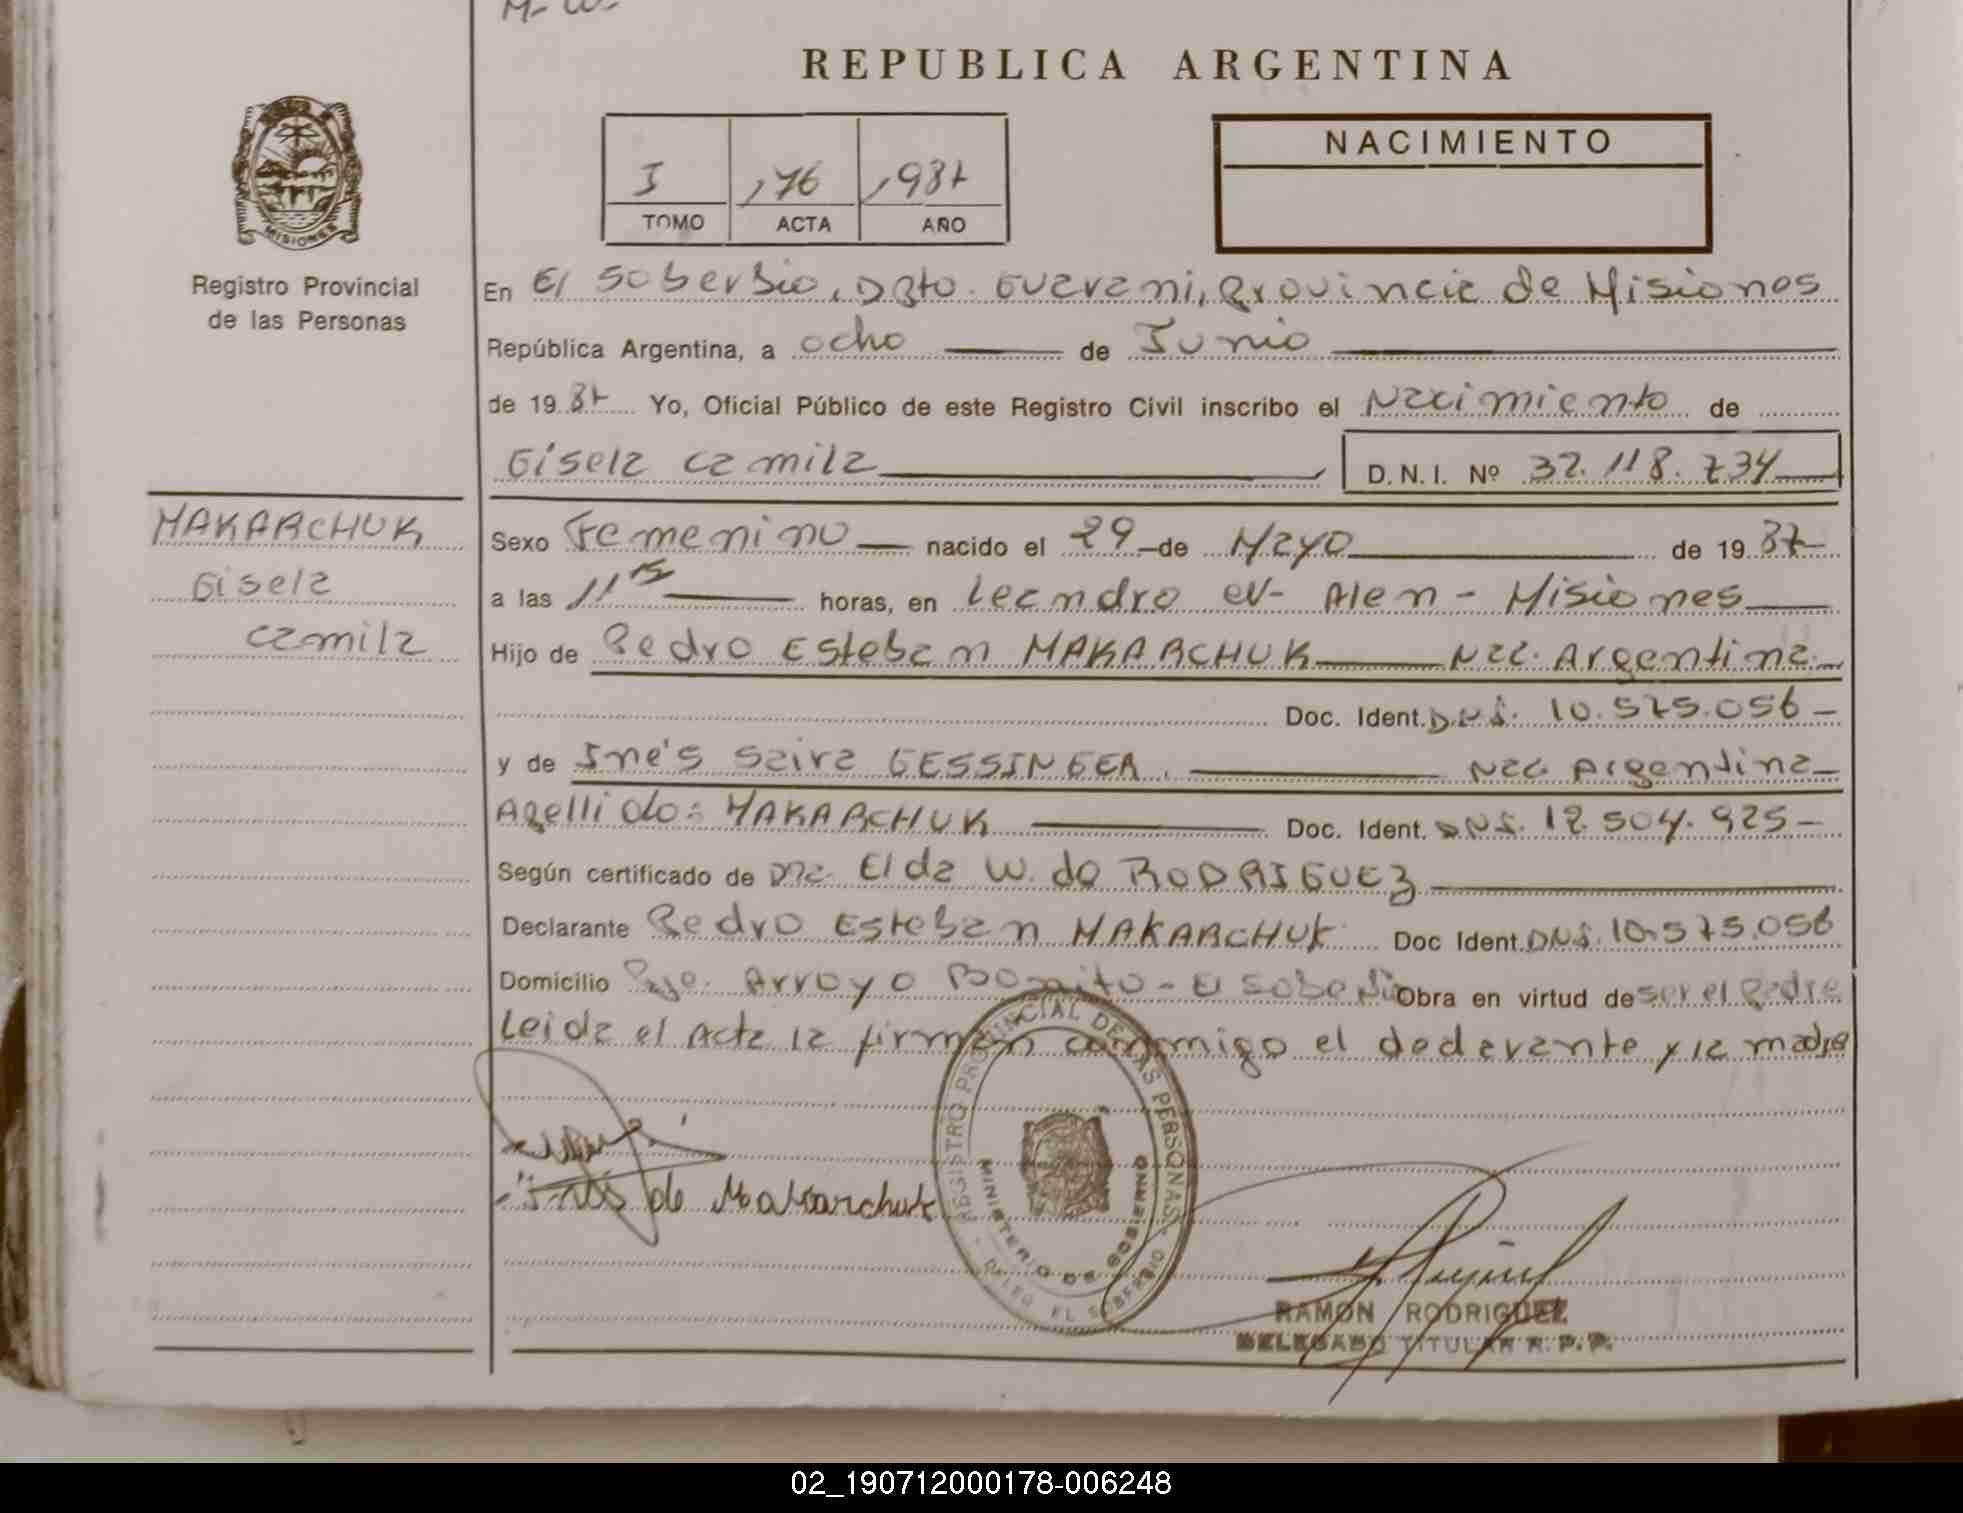 M- W-
REPUBLICA ARGENTINA
NACIMIENTO
I 176 1987
TOMO ACTA AÑO
MISIONES
Registro Provincial
de las Personas
En El Soberbio, Dpto. Guarani, Provincia de Misiones
República Argentina, a ocho de Junio
de 19 87 Yo, Oficial Público de este Registro Civil inscribo el Nacimiento de
Gisela Camila D.N.I. Nº 32.118.734
MAKARCHUK
Gisela
Camila
Sexo Femenino nacido el 29 de Mayo de 19 87
a las 11 15 horas, en Leandro N- Alen - Misiones
Hijo de Pedro Esteban MAKARCHUK Nac. Argentina
Doc. Ident. DNI. 10.575.056
y de Inés Saira GESSINGER. Nac Argentina
Apellido: MAKARCHUK Doc. Ident. DNI. 12.504.925
Según certificado de Dra. Elda W. de RODRIGUEZ
Declarante Pedro Esteban MAKARCHUK Doc Ident. DNI. 10.575.056
Domicilio Pje. Arroyo Bonito - El Soberbio Obra en virtud de ser el Padre
Leida el Acta la firman conmigo el declarante y la madre
Inés de Makarchuk
REGISTRO PROVINCIAL DE LAS PERSONAS
MINISTERIO DE GOBIERNO
DELEG. EL SOBERBIO
RAMON RODRIGUEZ
DELEGADO TITULAR R.P.P.
02_190712000178-006248